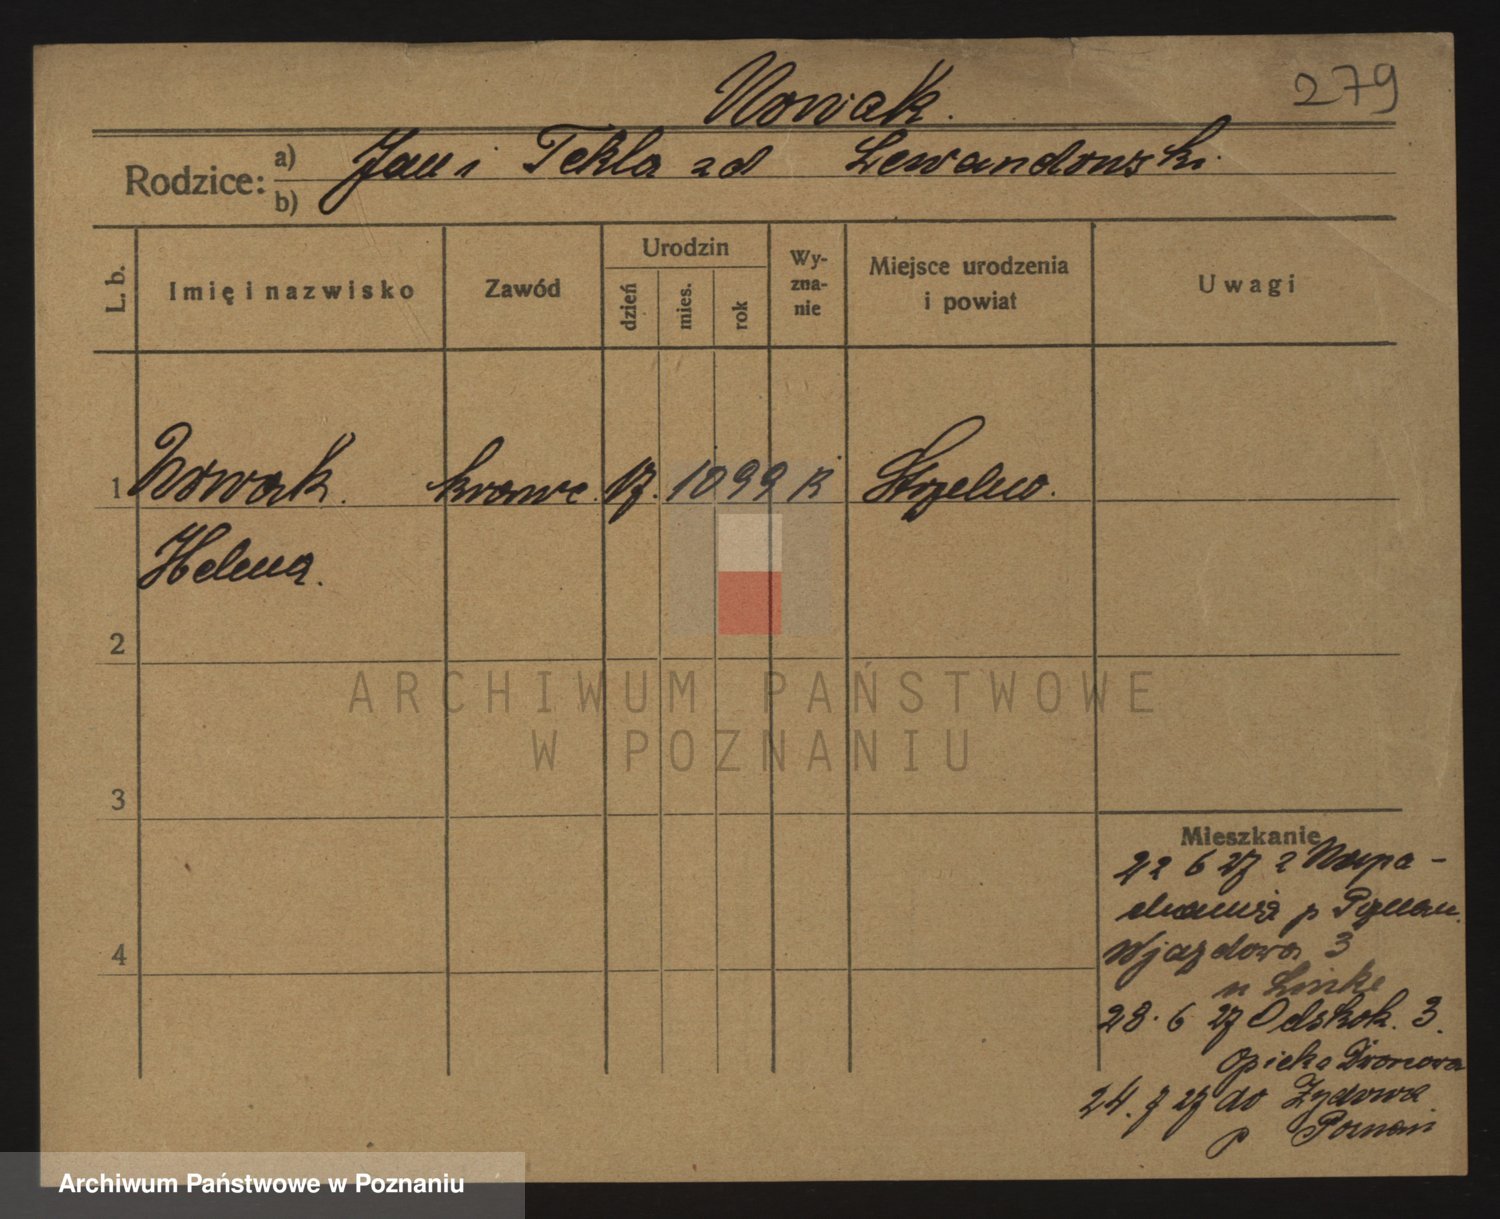 279
Nowak.
Rodzice: a) b) Jan i Tekla zd Lewandowski
L. b.
Imię i nazwisko
Zawód
Urodzin
dzień
mies.
rok
Wy-
zna-
nie
Miejsce urodzenia
i powiat
Uwagi
1 Nowak. krawc. 17. 10 99 K Strzelno.
Helena.
2
ARCHIWUM PAŃSTWOWE
W POZNANIU
3
Mieszkanie
22 6 27 z
p
4
Wjazdowa 3
u Linke
28. 6 27 Odskok. 3.
Opieka Dworcowa
24. 7 27 do Żydowa
p Poznań
Archiwum Państwowe w Poznaniu